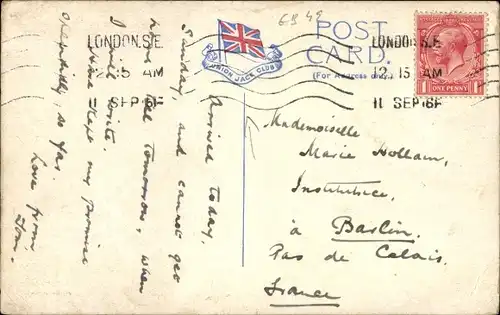 GB 42
POST
CARD.
(For Address only.)
UNION JACK CLUB
LONDON. S.E.
12.15 AM
11 SEP 16
LONDON. S.E.
12.15 AM
11 SEP 16
ONE PENNY
Arrived today,
Sunday, and cannot go
tell tomorrow, when
I will write.
Have kept my promise
splendidly, so far.
Love from
Tom.
Mademoiselle
Marie Hollain,
Institutrice,
à Barlin,
Pas de Calais.
France